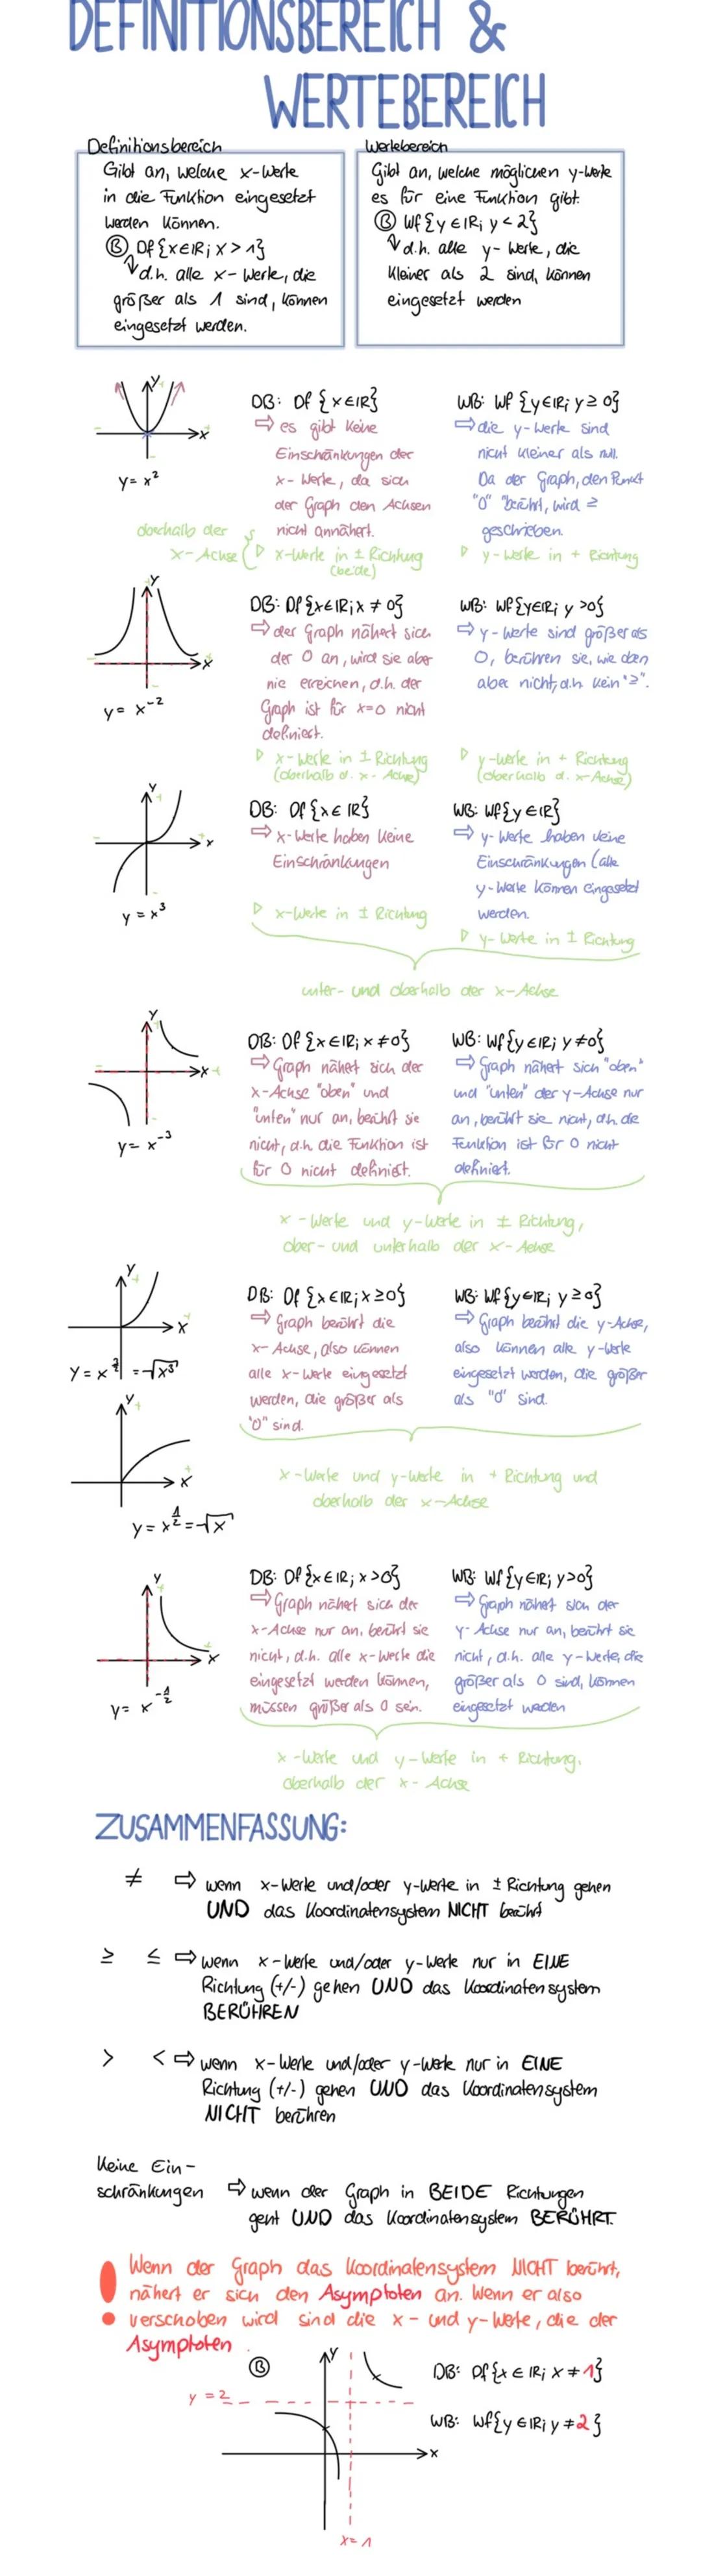 DEFINITIONSBEREICH &
WERTEBEREICH
Definitionsbereich
Gibt an, welche x-Werte
in die Funktion eingesetzt
werden können.
Ⓑ Df{x∈ℝ; x > 1}
↓ d.h. alle x-Werte, die
größer als 1 sind, können
eingesetzt werden.
Wertebereich
Gibt an, welche möglichen y-Werte
es für eine Funktion gibt.
Ⓑ Wf{y∈ℝ; y < 2}
↓ d.h. alle y-Werte, die
kleiner als 2 sind, können
eingesetzt werden
y
x
y = x²
DB: Df {x∈ℝ}
⇨ es gibt keine
Einschränkungen der
x-Werte, da sich
der Graph den Achsen
nicht annähert.
oberhalb der
x-Achse
▷ x-Werte in ± Richtung
(beide)
WB: Wf {y∈ℝ; y ≥ 0}
⇨ die y-Werte sind
nicht kleiner als null.
Da der Graph, den Punkt
"0" berührt, wird ≥
geschrieben.
▷ y-Werte in + Richtung
y
x
y = x⁻²
DB: Df{x∈ℝ; x ≠ 0}
⇨ der Graph nähert sich
der 0 an, wird sie aber
nie erreichen, d.h. der
Graph ist für x=0 nicht
definiert.
▷ x-Werte in ± Richtung
(oberhalb d. x-Achse)
WB: Wf{y∈ℝ; y > 0}
⇨ y-Werte sind größer als
0, berühren sie, wie oben
aber nicht, d.h. kein "≥".
▷ y-Werte in + Richtung
(oberhalb d. x-Achse)
y
x
y = x³
DB: Df{x∈ℝ}
⇨ x-Werte haben keine
Einschränkungen
▷ x-Werte in ± Richtung
WB: Wf{y∈ℝ}
⇨ y-Werte haben keine
Einschränkungen (alle
y-Werte können eingesetzt
werden.
▷ y-Werte in ± Richtung
unter- und oberhalb der x-Achse
y
x
y = x⁻³
DB: Df{x∈ℝ; x ≠ 0}
⇨ Graph nähert sich der
x-Achse "oben" und
"unten" nur an, berührt sie
nicht, d.h. die Funktion ist
für 0 nicht definiert.
WB: Wf{y∈ℝ; y ≠ 0}
⇨ Graph nähert sich "oben"
und "unten" der y-Achse nur
an, berührt sie nicht, d.h. die
Funktion ist für 0 nicht
definiert.
x-Werte und y-Werte in ± Richtung,
ober- und unterhalb der x-Achse
y
x
y = x^(3/2) = √x³
y
x
y = x^(1/2) = √x
DB: Df{x∈ℝ; x ≥ 0}
⇨ Graph berührt die
x-Achse, also können
alle x-Werte eingesetzt
werden, die größer als
"0" sind.
WB: Wf{y∈ℝ; y ≥ 0}
⇨ Graph berührt die y-Achse,
also können alle y-Werte
eingesetzt werden, die größer
als "0" sind.
x-Werte und y-Werte in + Richtung und
oberhalb der x-Achse
y
x
y = x^(-1/2)
DB: Df{x∈ℝ; x > 0}
⇨ Graph nähert sich der
x-Achse nur an, berührt sie
nicht, d.h. alle x-Werte die
eingesetzt werden können,
müssen größer als 0 sein.
WB: Wf{y∈ℝ; y > 0}
⇨ Graph nähert sich der
y-Achse nur an, berührt sie
nicht, d.h. alle y-Werte, die
größer als 0 sind, können
eingesetzt werden
x-Werte und y-Werte in + Richtung,
oberhalb der x-Achse
ZUSAMMENFASSUNG:
≠ ⇨ wenn x-Werte und/oder y-Werte in ± Richtung gehen
UND das Koordinatensystem NICHT berührt
≥ ≤ ⇨ wenn x-Werte und/oder y-Werte nur in EINE
Richtung (+/-) gehen UND das Koordinatensystem
BERÜHREN
> < ⇨ wenn x-Werte und/oder y-Werte nur in EINE
Richtung (+/-) gehen UND das Koordinatensystem
NICHT berühren
Keine Ein-
schränkungen ⇨ wenn der Graph in BEIDE Richtungen
geht UND das Koordinatensystem BERÜHRT.
! Wenn der Graph das Koordinatensystem NICHT berührt,
nähert er sich den Asymptoten an. Wenn er also
verschoben wird sind die x- und y-Werte, die der
Asymptoten.
Ⓑ
y
y = 2
x
x = 1
DB: Df{x∈ℝ; x ≠ 1}
WB: Wf{y∈ℝ; y ≠ 2}